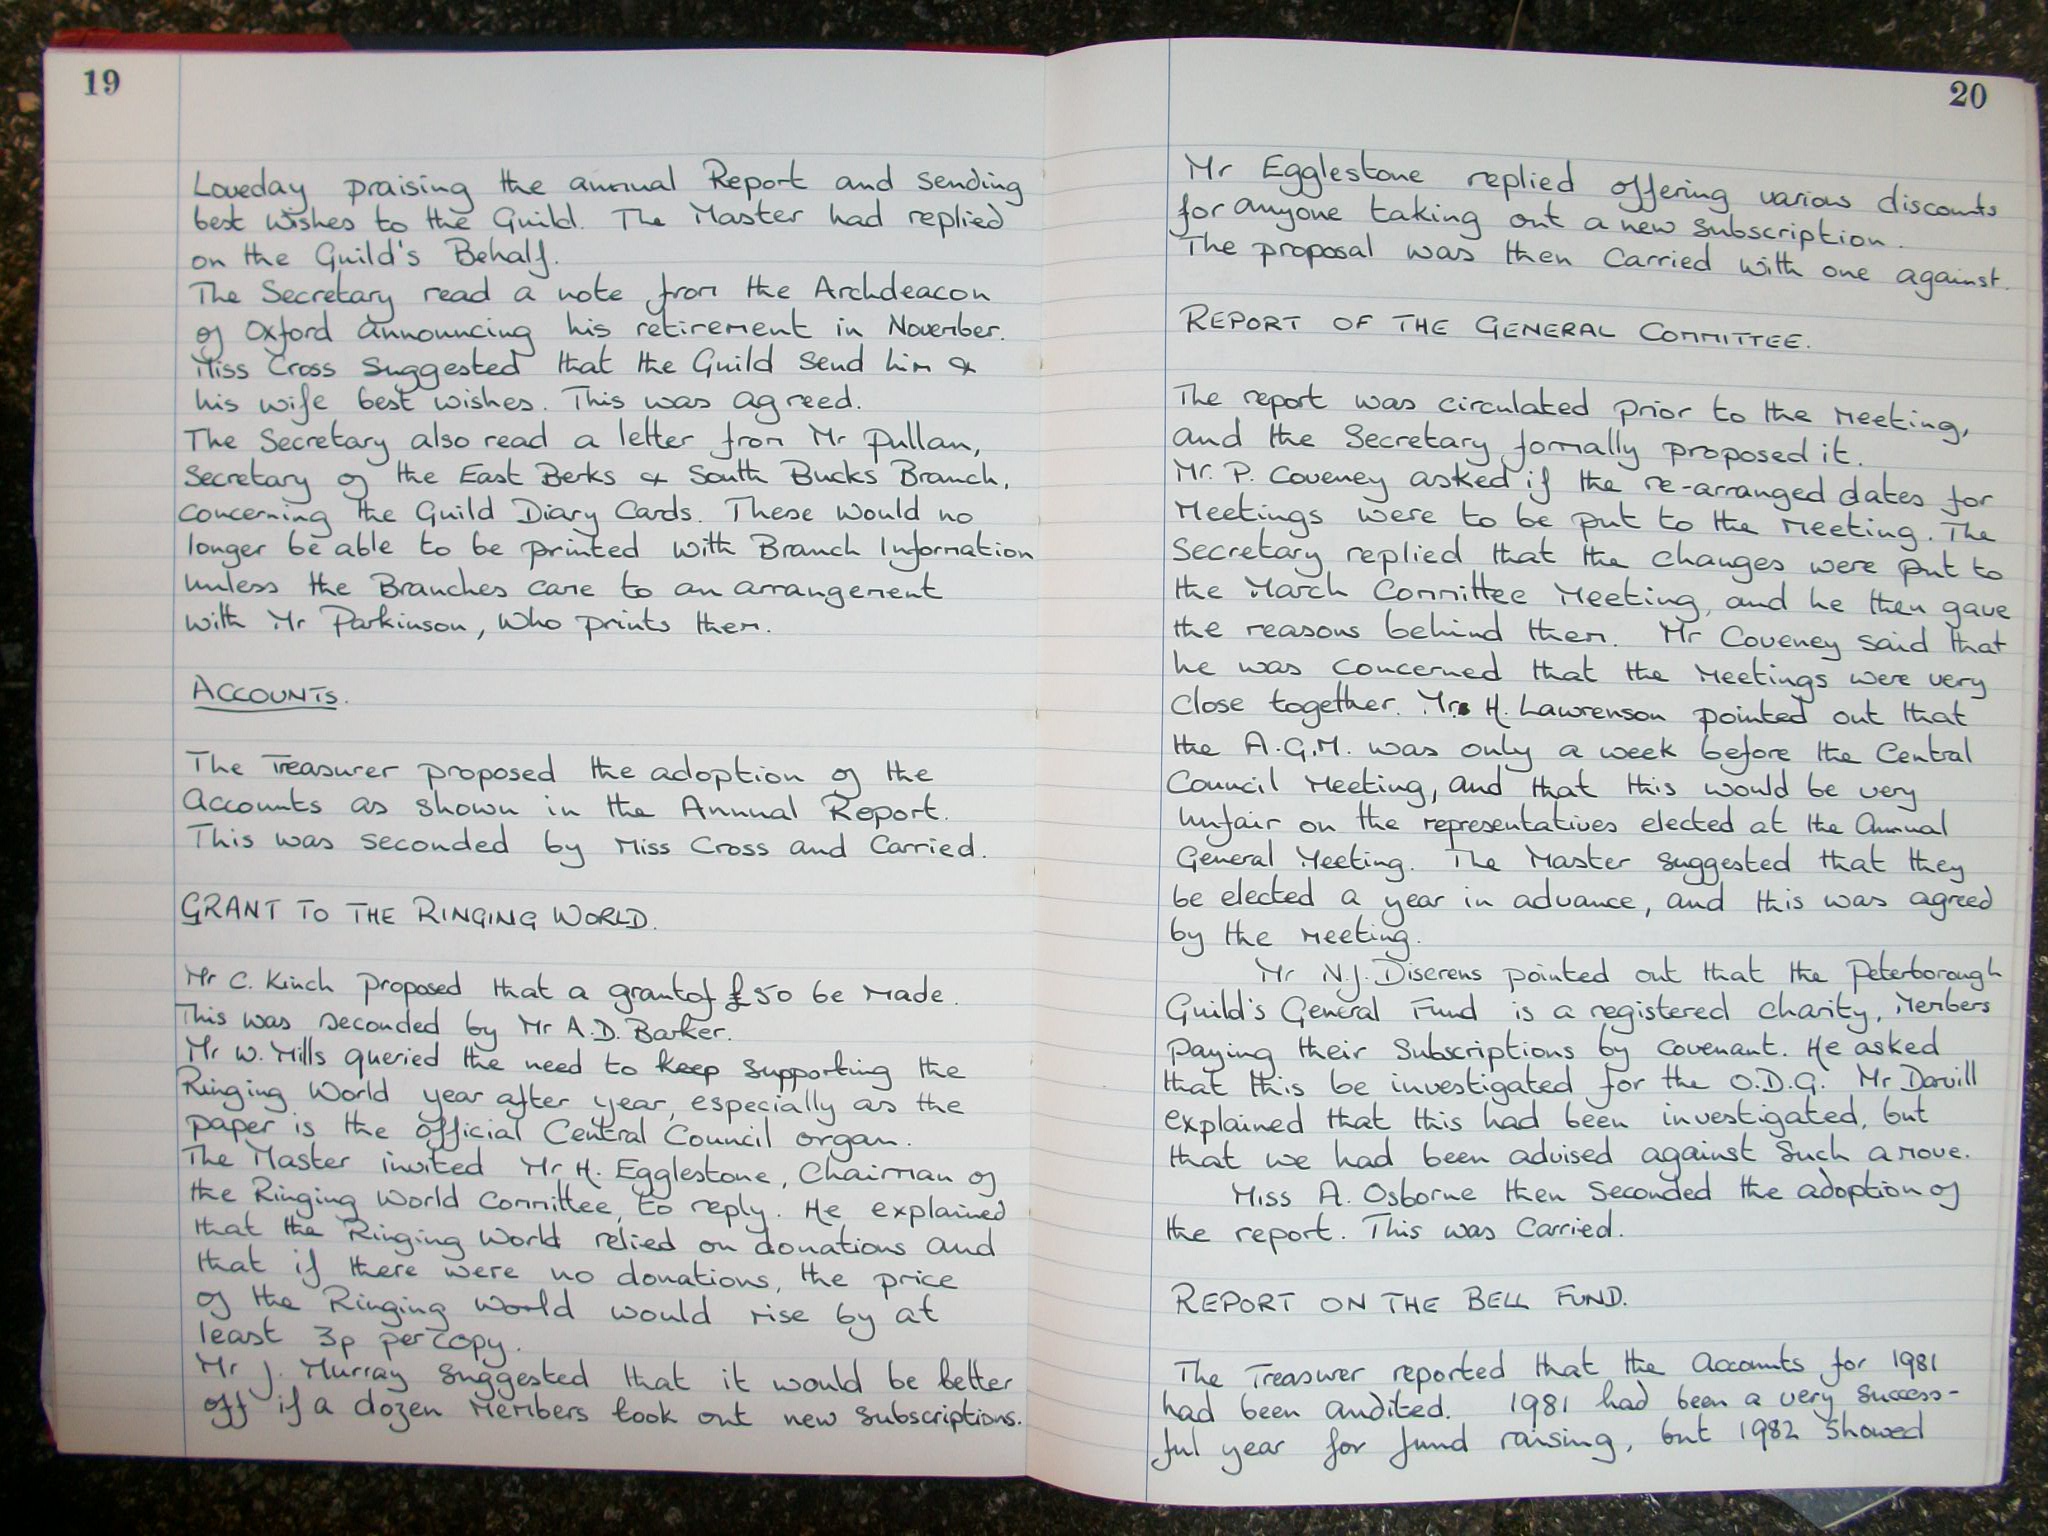 19
Loveday praising the annual Report and sending
best wishes to the Guild. The Master had replied
on the Guild's Behalf.
The Secretary read a note from the Archdeacon
of Oxford announcing his retirement in November.
Miss Cross suggested that the Guild send him &
his wife best wishes. This was agreed.
The Secretary also read a letter from Mr Pullan,
Secretary of the East Berks & South Bucks Branch,
concerning the Guild Diary Cards. These would no
longer be able to be printed with Branch Information
unless the Branches came to an arrangement
with Mr Parkinson, who prints them.
ACCOUNTS.
The Treasurer proposed the adoption of the
Accounts as shown in the Annual Report.
This was seconded by Miss Cross and Carried.
GRANT TO THE RINGING WORLD.
Mr C. Kinch proposed that a grant of £50 be made.
This was seconded by Mr A.D. Barker.
Mr W. Mills queried the need to keep supporting the
Ringing World year after year, especially as the
paper is the official Central Council organ.
The Master invited Mr H. Egglestone, Chairman of
the Ringing World Committee, to reply. He explained
that the Ringing World relied on donations and
that if there were no donations, the price
of the Ringing World would rise by at
least 3p per copy.
Mr J. Murray suggested that it would be better
off if a dozen members took out new subscriptions.
20
Mr Egglestone replied offering various discounts
for anyone taking out a new subscription.
The proposal was then Carried with one against.
REPORT OF THE GENERAL COMMITTEE.
The report was circulated prior to the meeting,
and the Secretary formally proposed it.
Mr. P. Coveney asked if the re-arranged dates for
Meetings were to be put to the meeting. The
Secretary replied that the changes were put to
the March Committee Meeting, and he then gave
the reasons behind them. Mr Coveney said that
he was concerned that the meetings were very
close together. Mrs H. Lawrenson pointed out that
the A.G.M. was only a week before the Central
Council Meeting, and that this would be very
unfair on the representatives elected at the Annual
General Meeting. The Master suggested that they
be elected a year in advance, and this was agreed
by the meeting.
Mr N.J. Diserens pointed out that the Peterborough
Guild's General Fund is a registered charity, members
paying their subscriptions by covenant. He asked
that this be investigated for the O.D.G. Mr Darvill
explained that this had been investigated, but
that we had been advised against such a move.
Miss A. Osborne then seconded the adoption of
the report. This was Carried.
REPORT ON THE BELL FUND.
The Treasurer reported that the Accounts for 1981
had been audited. 1981 had been a very success-
ful year for fund raising, but 1982 showed